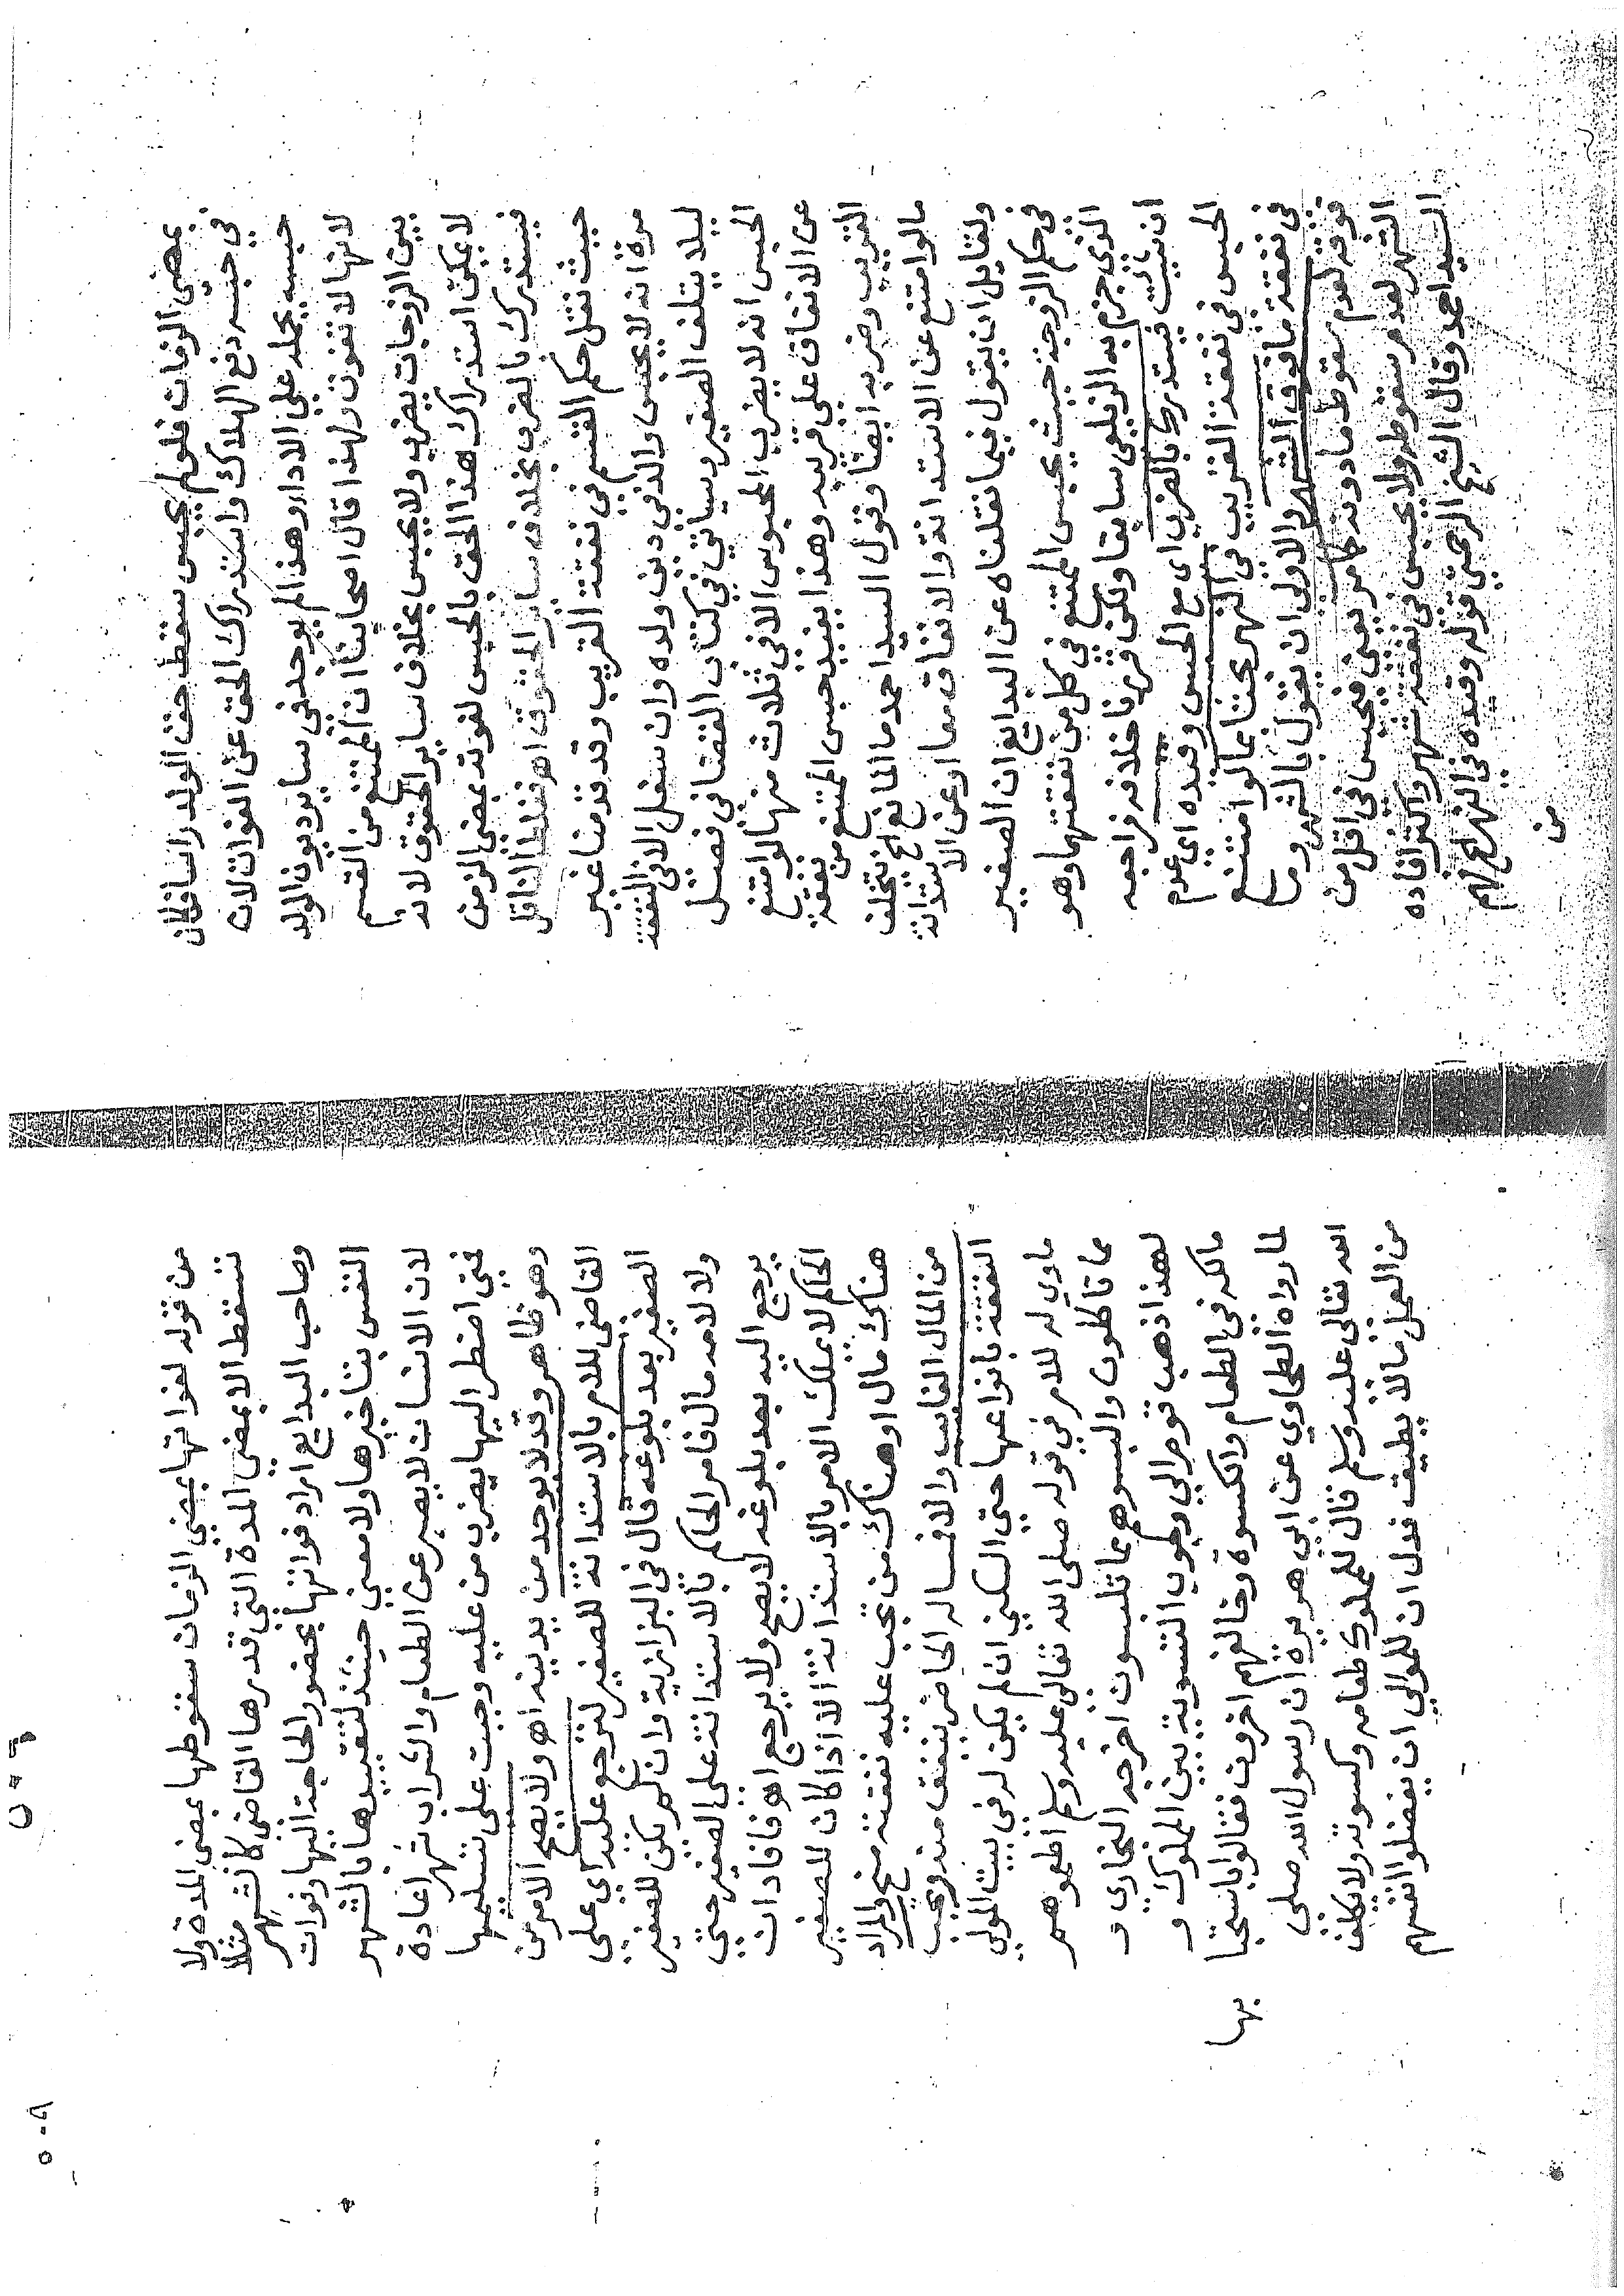 بمضي الزمان فلو لم يحبس سقط حق الولد راسا فكان
في حبسه دفع الهلاك واستدراك الحق عن الفوات لان
حبسه يحمله علي الادا وهذا لم يوجد في ساير ديون الولد
لانها لا تفوت ولهذا قال اصحابنا ان الممتنع من القسم
بين الزوجات يضرب ولا يحبس بخلاف ساير الحقوق لانه
لا يمكن استدراك هذا الحق بالحبس لفوته بمضي الزمن
فيستدرك بالضرب بخلاف ساير الحقوق اهـ فغلط الناقل
حيث نقل حكم القسم في نفقة القريب وقد قدمنا غير
مرة انه لا يحبس والد في دين ولده وان سفل الا في النفقة
ليلا يتلف الصغير وسياتي في كتاب القضا في فصل
الحبس انه لا يضرب المحبوس الا في ثلاث منها لو امتنع
عن الانفاق علي قريبه وهذا يفيد حبس الممتنع من نفقة
القريب وضربه ايضا وقول السيد احمد ما المانع الخ تخلف
ما لو امتنع عن الاستدانة والانفاق معا او عن الاستدانة
ولقايل ان يقول فيما نقلناه عن البدايع ان الصغير
في حكم الزوجة حيث يحبس الممتنع في كل من نفقتهما وهو
الذي جزم به الزيلعي سابقا ولكن قررنا خلافه فراجعه
ان نبت فيستدرك بالضرب اي مع الحبس وقيده اي عدم
الحبس في نفقة القريب في النهر بحثا بما لو امتنع
في نفقة ما فوق الشهر والاولي ان يقول بالشهر وما
فوقه لعدم سقوط ما دونه كما مر يعني فيحبس في اقل من
الشهر لعدم سقوطه ولا يحبس في نفقة شهر واكثر افاده
السيد احمد وقال الشيخ الرحمتي قوله وقيده في النهر الخ لهم
من
من قوله لفواتها بمضي الزمان سقوطها بمضي المدة ولا
تسقط الا بمضي المدة التي قدرها القاضي كالشهر مثلا
وصاحب البدايع اراد فواتها بحضور الحاجة اليها وفوات
النفس بتاخيرها ولا معني حينئذ لتقييدها بالشهر
لان الانسان لا يصبر عن الطعام والشراب شهرا عادة
فمتي اضطر اليها يضرب من عليه وجبت علي تسليمها
وهو ظاهر وقد لا يوجد من يدينه اهـ ولا يصح الامر من
القاضي للام بالاستدانة للصغير لترجع عليه اي علي
الصغير بعد بلوغه قال في البزازية وان لم يكن للصغير
ولا لامه مال فامر الحاكم بالاستدانة علي الصغير حتي
يرجع اليه بعد بلوغه لا يصح ولا يرجع اهـ فافاد ان
الحاكم لا يملك الامر بالاستدانة الا اذا كان للصغير
هناك مال او هناك من تجب عليه نفقته منح والمراد
من المال الغايب والا فماله الحاضر ينفق منه ويجب
النفقة بانواعها حتي السكني ان لم يكن له في بيت المولي
ماوي له للامر في قوله صلي الله تعالي عليه وسلم اطعموهم
مما تاكلون والبسوهم مما تلبسون اخرجه البخاري و
لهذا ذهب قوم الي وجوب التسوية بين المملوك و
مالكه في الطعام والكسوة وخالفهم اخرون فقالوا باستحبا
بها
لما رواه الطحاوي عن ابي هريرة ان رسول الله صلي
الله تعالي عليه وسلم قال للمملوك طعامه وكسوته ولا يكلف
من العمل ما لا يطيق فدل ان للموالي ان يفضلوا انفسهم
٥٠٩